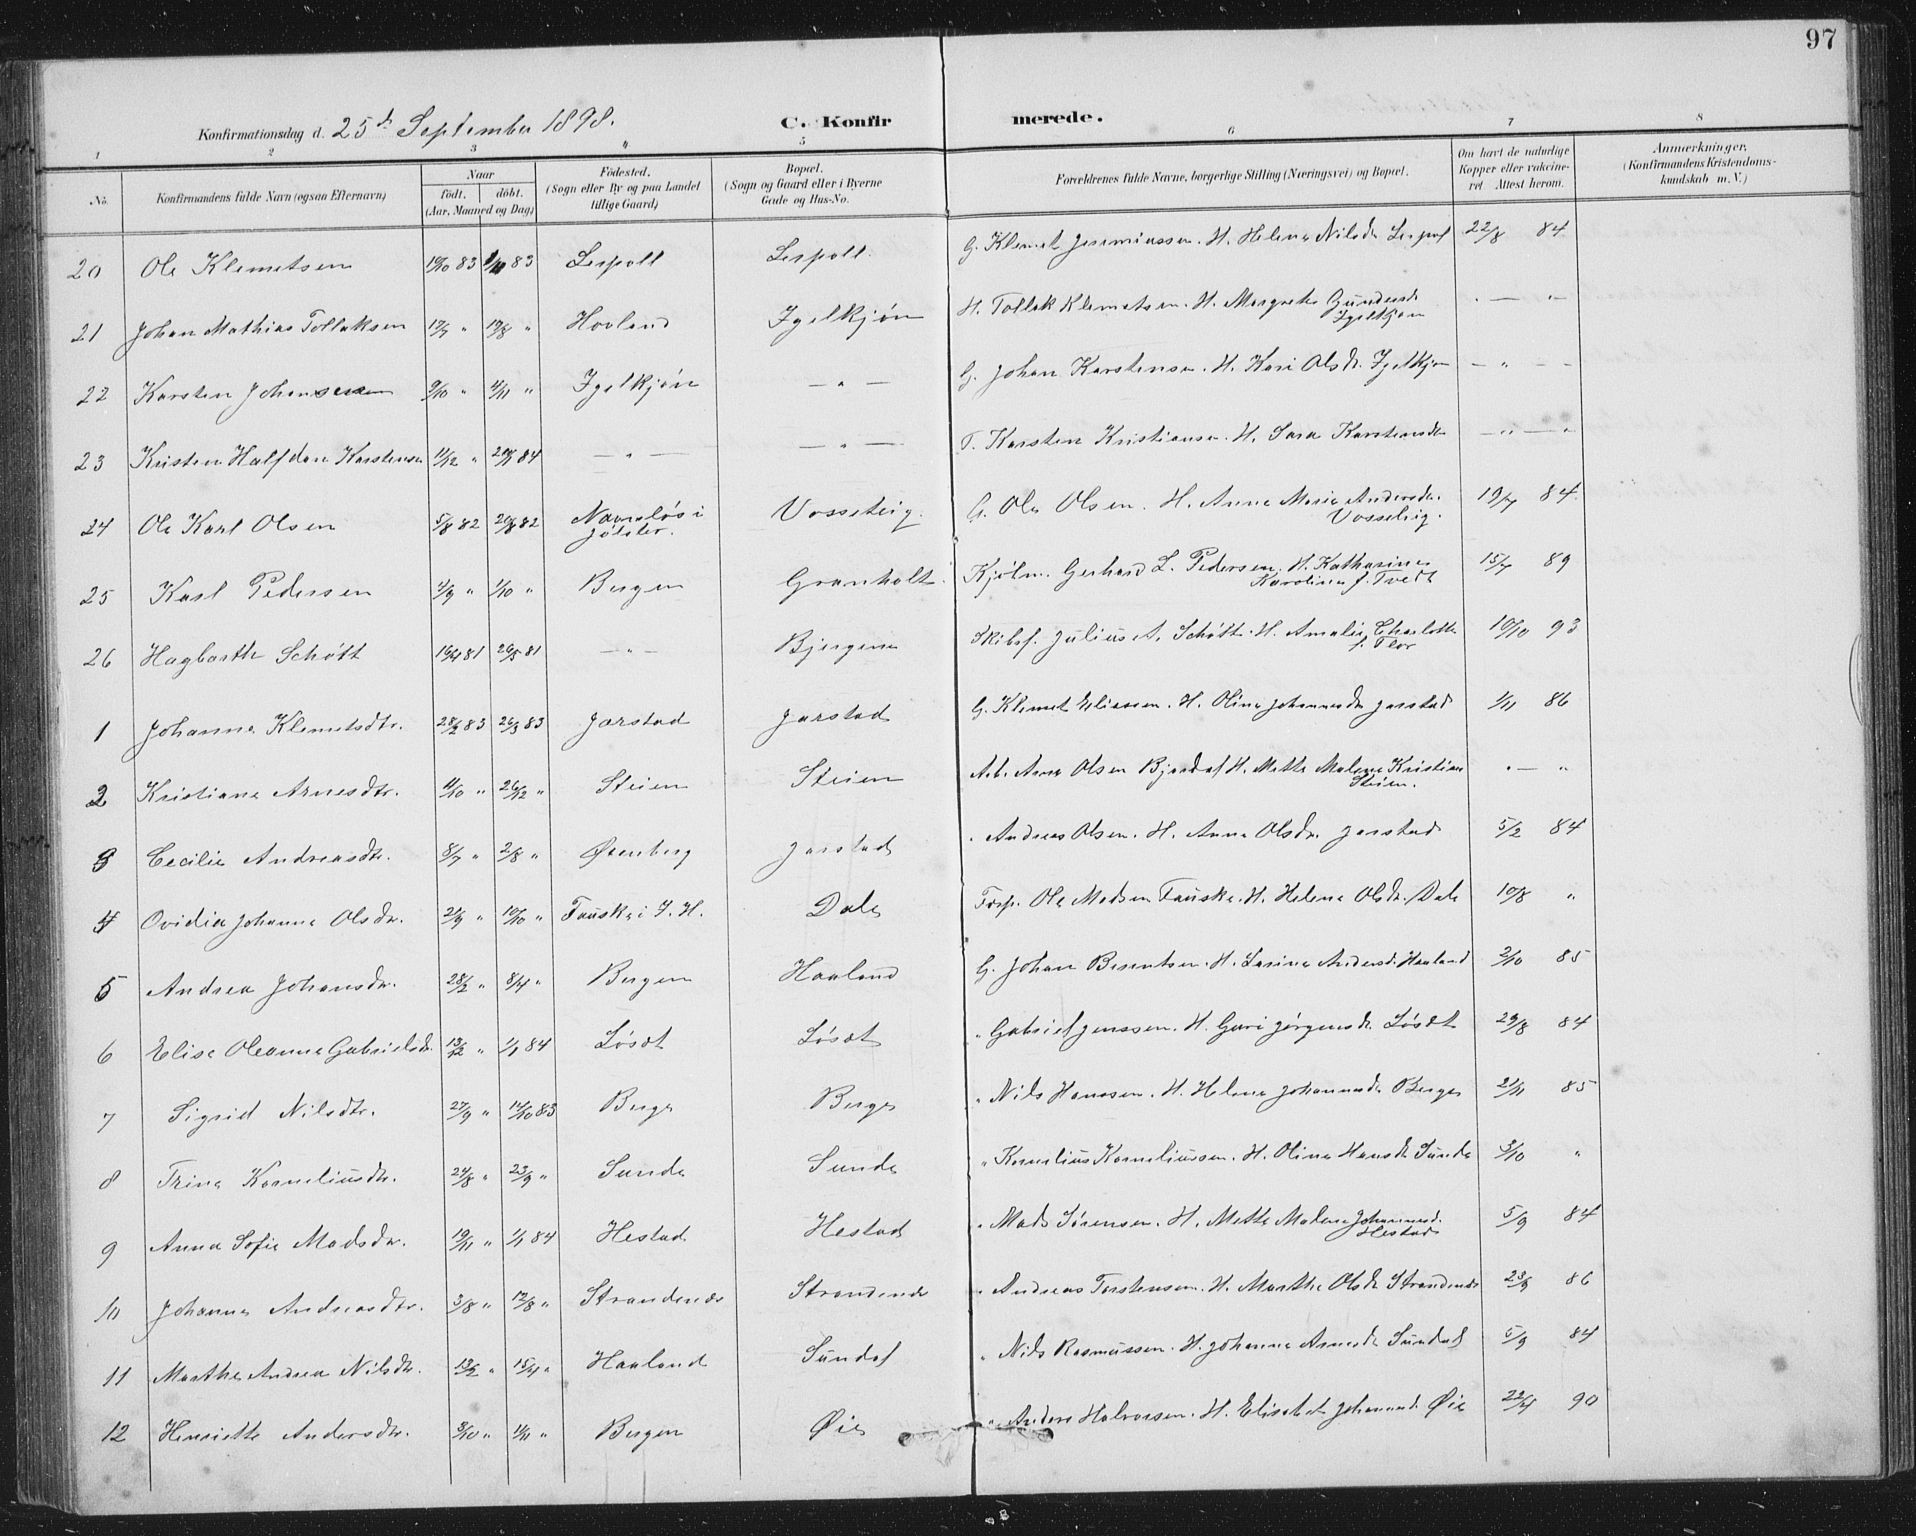 97
Konfirmationsdag d. 25de September 1898. C. Konfirmerede.
1 2 3 4 5 6 7 8
No. Konfirmandens fulde Navn (ogsaa Efternavn) Naar født. døbt. (Aar, Maaned og Dag) Fødested. (Sogn eller By og paa Landet tillige Gaard) Bopæl. (Sogn og Gaard eller i Byerne Gade og Hus-No. Forældrenes fulde Navne, borgerlige Stilling (Næringsvei) og Bopæl. Om havt de naturlige Kopper eller vakcineret. Attest herom. Anmærkninger. (Konfirmandens Kristendomskundskab m. V.)
20 Ole Klemetsen 83 83 Lerpoll Lerpoll. G. Klemet Jeremiassen. H. Helene Nilsdr 22/8 84
21 Johan Mathias Tollaksen " " Hovland Igelkjøn H. Tollak Klemetsen. H. Margrete Gundersdr Igelkjøn " — "
22 Karsten Johansen 9/10 " 4/11 " Igelkjøn — " — G. Johan Karstensen. H. Kari Olsdr. Igelkjøn — " — —
23 Kristen Halfdan Karstensen 11/12 " 84 — " — — " — Karsten Kristiansen. H. Sara Karstensdr — " — "
24 Ole Karl Olsen 5/8 82 20/8 82 i Jølster. Vosseteig. G. Ole Olsen. H. Anne Marie Andersdr. Vosseteig. 19/7 84
25 Karl Pedersen 4/9 " 1/10 " Bergen Granholt Kjølm. Gerhard L. Pedersen. H. Katharina Karolina f. Tvedt 15/7 89
26 Hagbarth Schøtt 16/4 81 26/5 81 — " — Bjergene Skibsf. Julius A. Schøtt. H. Amalie Charlotte f. Flor 10/10 93
1 Johanne Klemetsdtr. 28/2 83 26/3 83 Jarstad Jarstad G. Klemet Eliassen. H. Olina Johannesdr Jarstad 1/11 86
2 Kristiane Arnesdtr. 11/10 " 26/12 " Steien Steien Arb. Arne Olsen H. Mette Malene Kristian Steien. " — "
3 Cecilie Andreasdtr. 8/7 " 2/8 " Øvenberg Jarstad " Andreas Olsen. H. Anne Olsdr. Jarstad 5/2 84
4 Ovidia Johanne Olsdr. 21/9 " 10/10 " Fauske i Y. H. Dale Forp. Ole Madsen Fauske. H. Helene Olsdr. Dale 10/8 "
5 Andrea Johansdr. 28/2 " 8/4 " Bergen Haaland G. Johan Berentsen. H. Larina Andersd. Haaland 2/10 85
6 Elise Oleanne Gabrielsdr. 13/12 " 1/1 84 Løset Løset " Gabriel Jenssen. H. Guri Jørgensdr Løset 29/8 84
7 Sigrid Nilsdtr. 27/9 " 14/10 83 Berge Berge " Nils Hanssen. H. Helene Johannesdr Berge 2/11 85
8 Trina Korneliusdtr. 24/8 " 23/9 " Sunde Sunde " Kornelius Korneliussen. H. Olina Hansdr Sunde 3/10 "
9 Anna Sofie Madsdtr. 19/11 " 1/1 84 Hestad Hestad " Mads Sørensen. H. Mette Malene Johannesd. Hestad 5/9 84
10 Johanne Andreasdtr. 3/8 " 12/8 " Strandenæs Strandenæs " Andreas Torstensen. H. Marthe Olsdr Strandenæs 86
11 Marthe Andrea Nilsdtr. " 15/4 " Haaland Sundal " Nils Rasmussen. H. Johanne Arnesdr Sundal 5/9 84
12 Henriette Andersdtr. 3/10 " 1/11 " Bergen Øie " Anders Halvorsen. H. Elisabet Johannesd. Øie 22/4 90